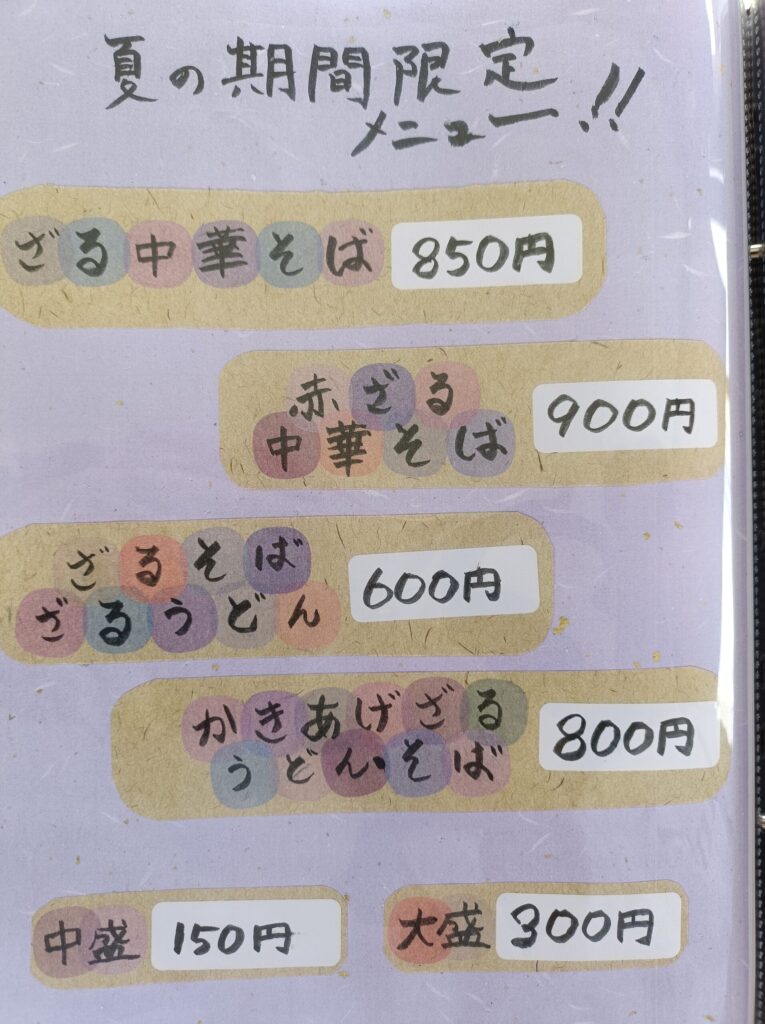 夏の期間限定
メニュー!!
ざる中華そば 850円
赤ざる
中華そば 900円
ざるそば
ざるうどん 600円
かきあげざる
うどん・そば 800円
中盛 150円
大盛 300円